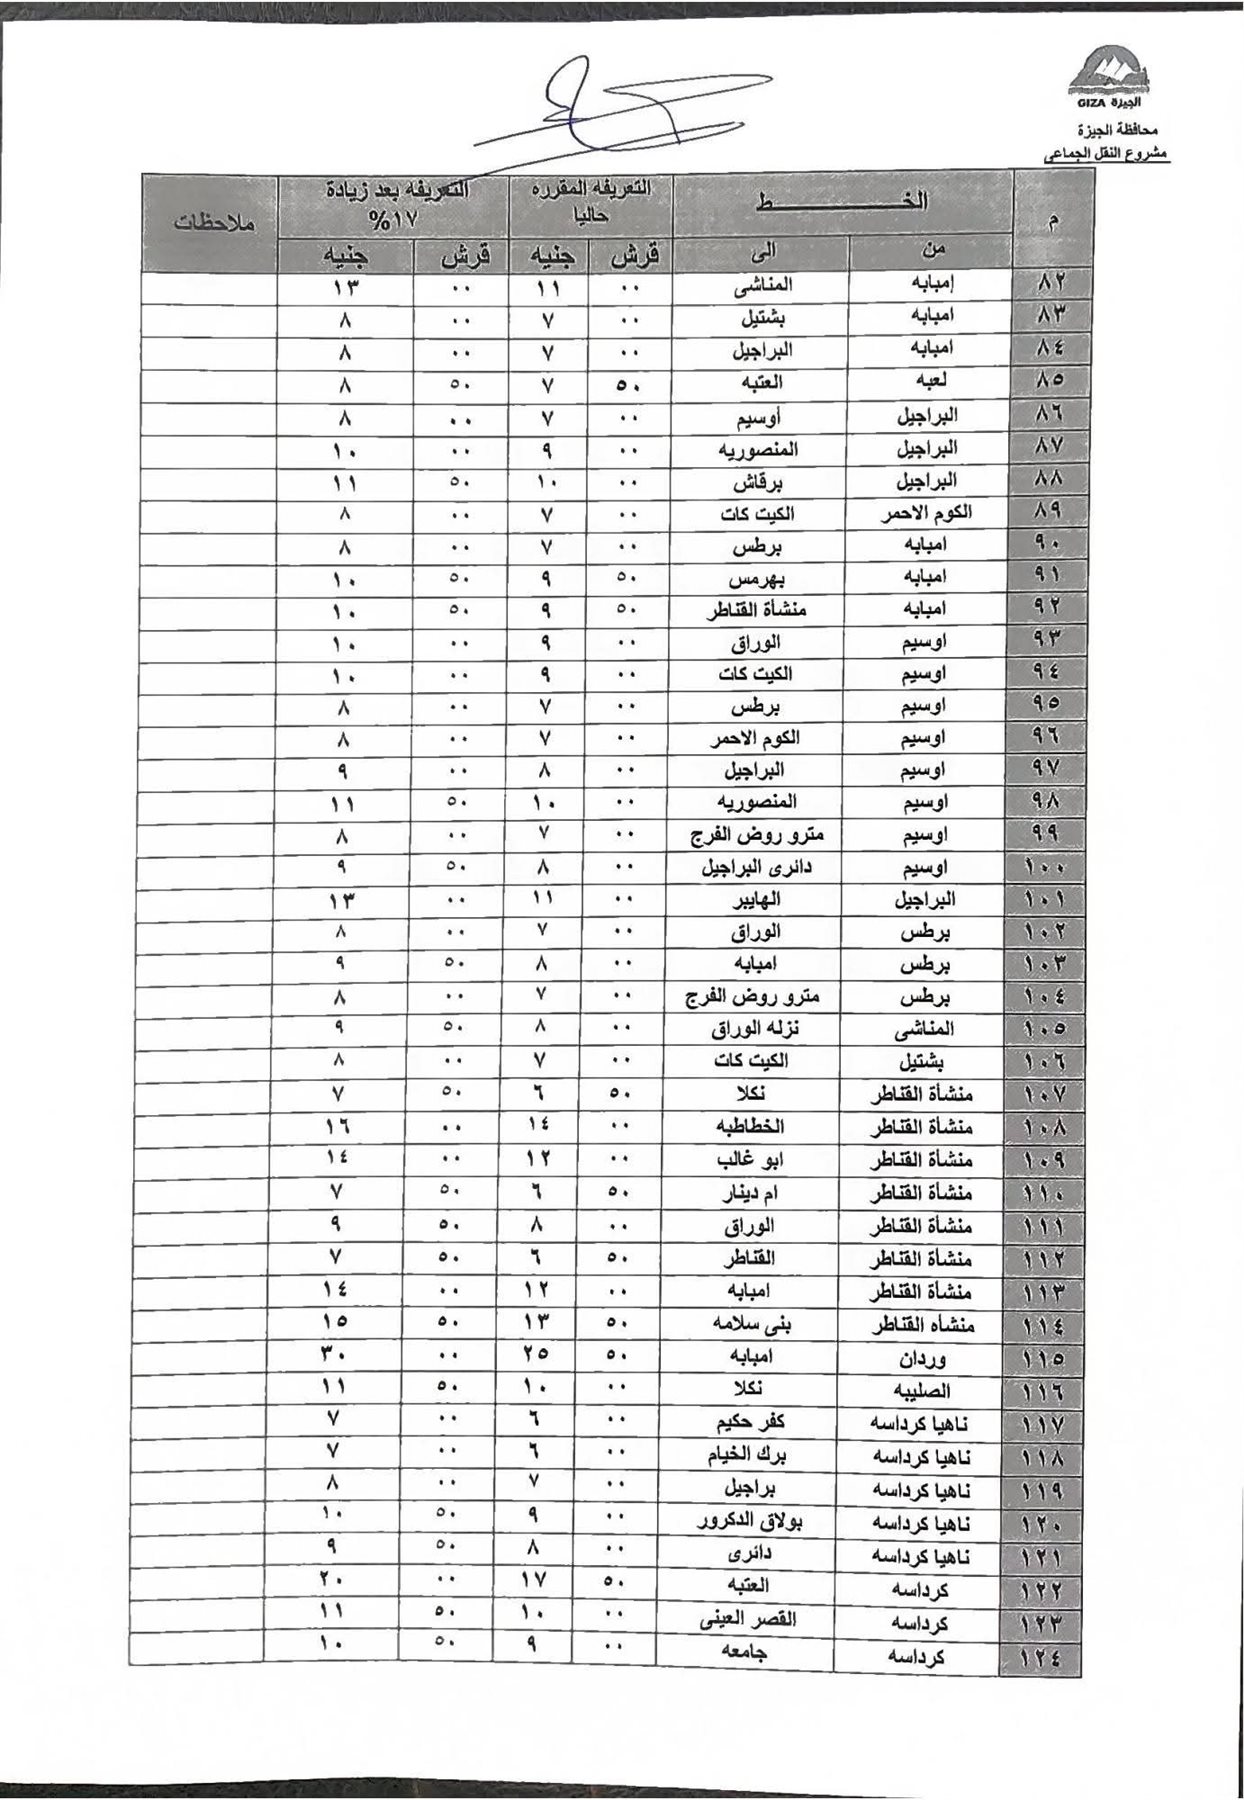 الجيزة GIZA
محافظة الجيزة
مشروع النقل الجماعى
م الخـــــط التعريفه المقرره حاليا التعريفه بعد زيادة ١٧% ملاحظات
من الى قرش جنيه قرش جنيه
٨٢ إمبابه المناشى ٠٠ ١١ ٠٠ ١٣
٨٣ امبابه بشتيل ٠٠ ٧ ٠٠ ٨
٨٤ امبابه البراجيل ٠٠ ٧ ٠٠ ٨
٨٥ لعبه العتبه ٥٠ ٧ ٥٠ ٨
٨٦ البراجيل أوسيم ٠٠ ٧ ٠٠ ٨
٨٧ البراجيل المنصوريه ٠٠ ٩ ٠٠ ١٠
٨٨ البراجيل برقاش ٠٠ ١٠ ٥٠ ١١
٨٩ الكوم الاحمر الكيت كات ٠٠ ٧ ٠٠ ٨
٩٠ امبابه برطس ٠٠ ٧ ٠٠ ٨
٩١ امبابه بهرمس ٥٠ ٩ ٥٠ ١٠
٩٢ امبابه منشأة القناطر ٥٠ ٩ ٥٠ ١٠
٩٣ اوسيم الوراق ٠٠ ٩ ٠٠ ١٠
٩٤ اوسيم الكيت كات ٠٠ ٩ ٠٠ ١٠
٩٥ اوسيم برطس ٠٠ ٧ ٠٠ ٨
٩٦ اوسيم الكوم الاحمر ٠٠ ٧ ٠٠ ٨
٩٧ اوسيم البراجيل ٠٠ ٨ ٠٠ ٩
٩٨ اوسيم المنصوريه ٠٠ ١٠ ٥٠ ١١
٩٩ اوسيم مترو روض الفرج ٠٠ ٧ ٠٠ ٨
١٠٠ اوسيم دائرى البراجيل ٠٠ ٨ ٥٠ ٩
١٠١ البراجيل الهايبر ٠٠ ١١ ٠٠ ١٣
١٠٢ برطس الوراق ٠٠ ٧ ٠٠ ٨
١٠٣ برطس امبابه ٠٠ ٨ ٥٠ ٩
١٠٤ برطس مترو روض الفرج ٠٠ ٧ ٠٠ ٨
١٠٥ المناشى نزله الوراق ٠٠ ٨ ٥٠ ٩
١٠٦ بشتيل الكيت كات ٠٠ ٧ ٠٠ ٨
١٠٧ منشأة القناطر نكلا ٥٠ ٦ ٥٠ ٧
١٠٨ منشأة القناطر الخطاطبه ٠٠ ١٤ ٠٠ ١٦
١٠٩ منشأة القناطر ابو غالب ٠٠ ١٢ ٠٠ ١٤
١١٠ منشأة القناطر ام دينار ٥٠ ٦ ٥٠ ٧
١١١ منشأة القناطر الوراق ٠٠ ٨ ٥٠ ٩
١١٢ منشأة القناطر القناطر ٥٠ ٦ ٥٠ ٧
١١٣ منشأة القناطر امبابه ٠٠ ١٢ ٠٠ ١٤
١١٤ منشأه القناطر بنى سلامه ٥٠ ١٣ ٥٠ ١٥
١١٥ وردان امبابه ٥٠ ٢٥ ٠٠ ٣٠
١١٦ الصليبه نكلا ٠٠ ١٠ ٥٠ ١١
١١٧ ناهيا كرداسه كفر حكيم ٠٠ ٦ ٠٠ ٧
١١٨ ناهيا كرداسه برك الخيام ٠٠ ٦ ٠٠ ٧
١١٩ ناهيا كرداسه براجيل ٠٠ ٧ ٠٠ ٨
١٢٠ ناهيا كرداسه بولاق الدكرور ٠٠ ٩ ٥٠ ١٠
١٢١ ناهيا كرداسه دائرى ٠٠ ٨ ٥٠ ٩
١٢٢ كرداسه العتبه ٥٠ ١٧ ٠٠ ٢٠
١٢٣ كرداسه القصر العينى ٠٠ ١٠ ٥٠ ١١
١٢٤ كرداسه جامعه ٠٠ ٩ ٥٠ ١٠